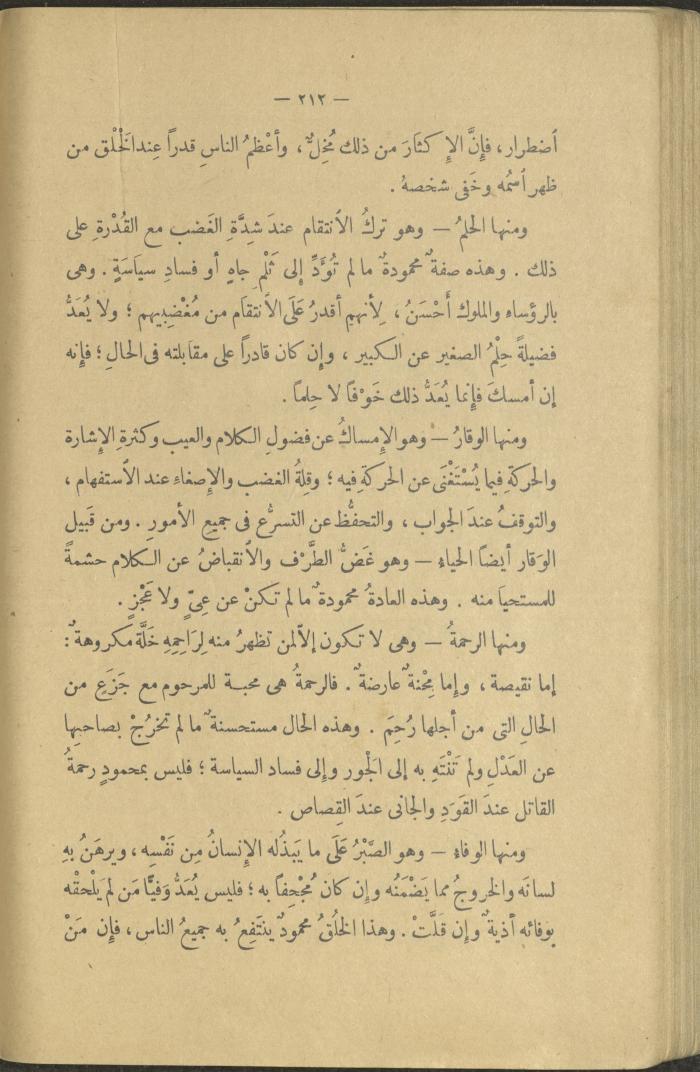 — ٢١٢ —
أضطرار، فإنَّ الإكثارَ من ذلك مُخِلٌّ، وأعْظمُ الناسِ قدراً عِندالخَلْق من
ظهر أسمُه وخَفى شخصهُ .
ومنها الحلمُ — وهو تركُ الأنتقام عندَ شِدَّةِ الغَضب مع القُدْرةِ على
ذلك . وهذه صفةٌ محمودةٌ ما لم تُؤَدِّ إلى ثَلْم جاهٍ أو فسادِ سيَاسَةٍ . وهى
بالرؤساءِ والملوك أَحْسَنُ، لِأنهم أقدرُ عَلَى الأنتقام من مُغْضِبِيهم ؛ ولا يُعَدُّ
فضيلةً حِلْمُ الصغير عن الكبير ، وإن كان قادراً على مقابلته فى الحال ؛ فإنه
إن أمسكَ فإنما يُعَدُّ ذلك خَوْفاً لا حِلماً .
ومنها الوقارُ — وهو الإمساكُ عن فضول الكلام والعيب وكثرةِ الإشارة
والحركةِ فيما يُسْتَغْنَى عن الحركةِ فيه ؛ وقلةُ الغضب والإصغاءُ عند الأستفهام ،
والتوقفُ عندَ الجواب ، والتحفُّظ عن التسرُّع فى جميع الأمور . ومن قَبيل
الوَقار أيضاً الحياءُ — وهو غَضُّ الطَّرْف والأنقباضُ عن الكلام حشمةً
للمستحيا منه . وهذه العادةُ محمودةٌ ما لم تكنْ عن عِىٍّ ولا عَجْزٍ .
ومنها الرحمةُ — وهى لا تكون إلاّ لمن تظهرُ منه لِرَاحِمِهِ خَلَّة مكروهةٌ :
إما نقيصة ، وإما مِحْنةٌ عارضةٌ . فالرحمةُ هى محبة للمرحوم مع جَزَعٍ من
الحالِ التى من أجلها رُحِمَ . وهذه الحال مستحسنةٌ ما لم تَخرُجْ بصاحبِها
عن العَدْلِ ولم تَنْتَهِ به إلى الجَوْر وإلى فساد السياسة ؛ فليس بمحمودٍ رحمةُ
القاتل عندَ القَوَدِ والجانى عندَ القِصاص .
ومنها الوفاءُ — وهو الصَّبْرُ عَلَى ما يَبذُله الإنسانُ مِن نَفْسِه ، ويرهَنُ بِهِ
لسانَه والخروجُ مما يَضْمَنُه وإن كان مُجْحِفاً به ؛ فليس يُعَدُّ وَفيًّا مَن لم يَلْحقْه
بوفائه أذيةٌ وإن قَلَّتْ . وهذا الخلُقُ محمودٌ ينتَفِعُ به جميعُ الناس ، فإن مَنْ